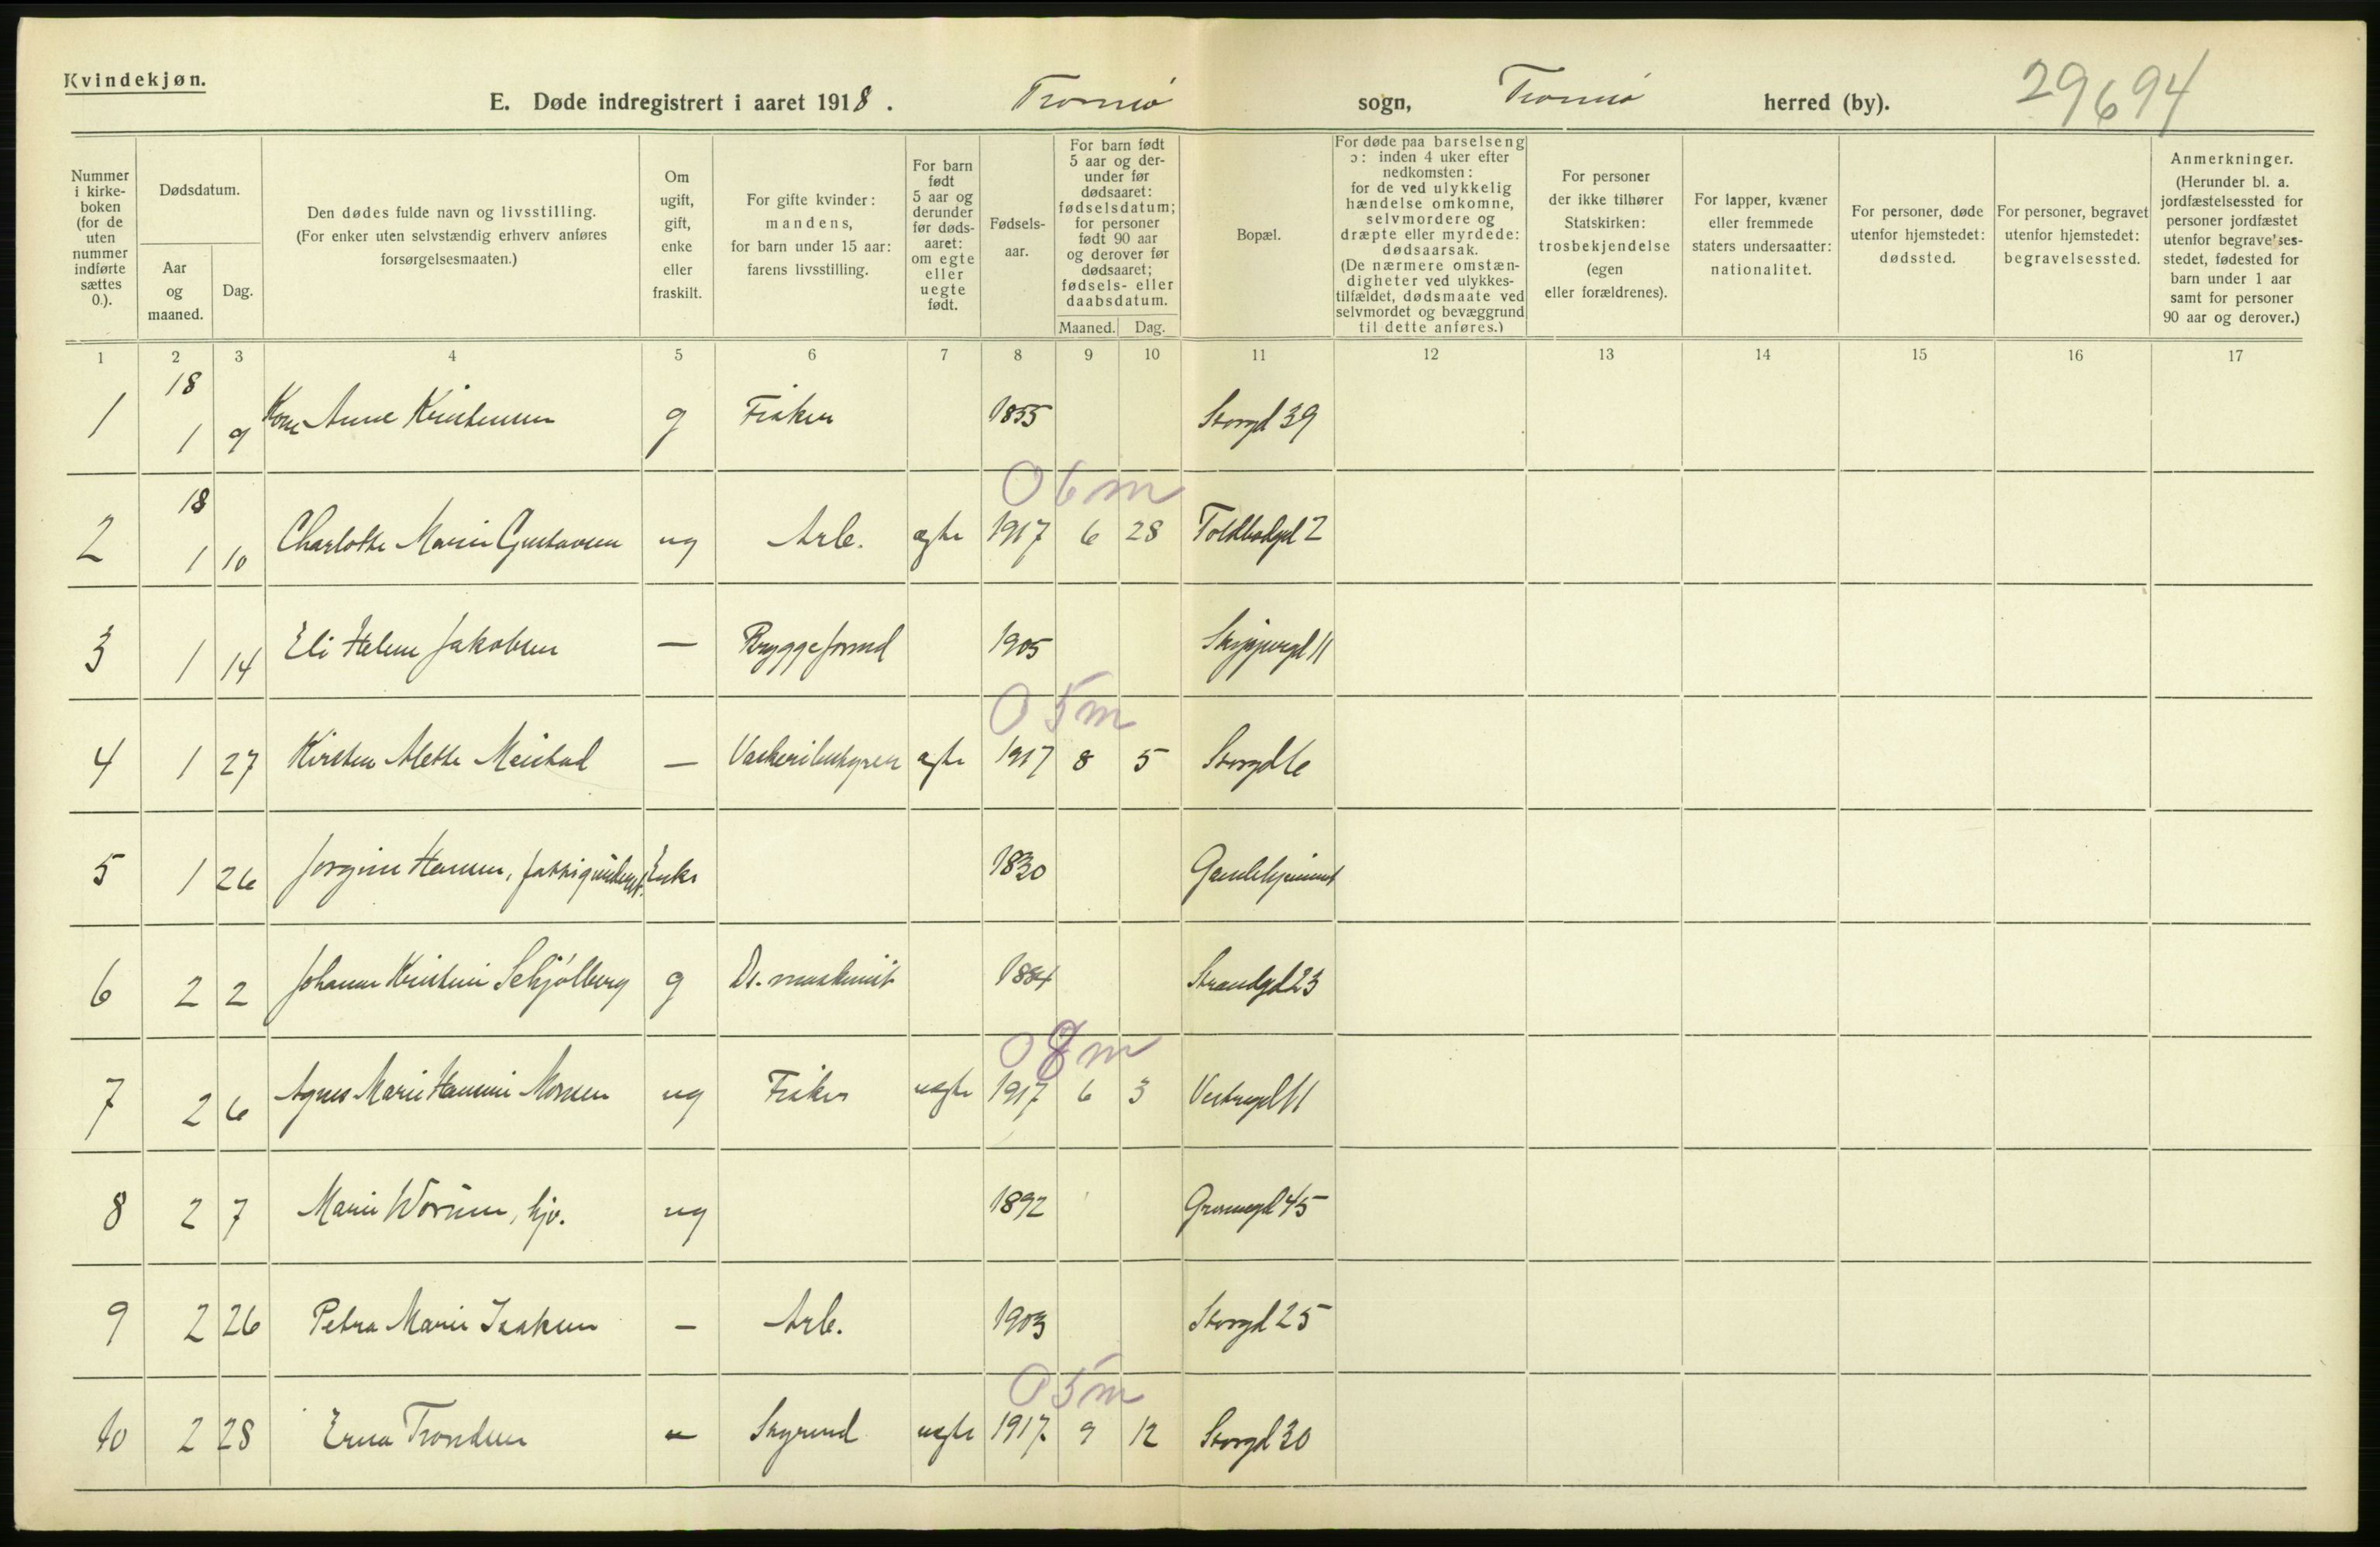 Kvindekjøn.
E. Døde indregistrert i aaret 1918. Tromsø sogn, Tromsø herred (by). 29694
Nummer i kirke- boken (for de uten nummer indførte sættes 0.).
Dødsdatum.
Aar og maaned.
Dag.
Den dødes fulde navn og livsstilling.
(For enker uten selvstændig erhverv anføres
forsørgelsesmaaten.)
Om ugift, gift, enke eller fraskilt.
For gifte kvinder:
mandens,
for barn under 15 aar:
farens livsstilling.
For barn født 5 aar og derunder før døds- aaret: om egte eller uegte født.
Fødsels- aar.
For barn født 5 aar og der- under før dødsaaret: fødselsdatum; for personer født 90 aar og derover før dødsaaret; fødsels- eller daabsdatum.
Maaned. Dag.
Bopæl.
For døde paa barselseng
ɔ: inden 4 uker efter
nedkomsten:
for de ved ulykkelig
hændelse omkomne,
selvmordere og
dræpte eller myrdede:
dødsaarsak.
(De nærmere omstæn-
digheter ved ulykkes-
tilfældet, dødsmaate ved
selvmordet og bevæggrund
til dette anføres.)
For personer
der ikke tilhører
Statskirken:
trosbekjendelse
(egen
eller forældrenes).
For lapper, kvæner
eller fremmede
staters undersaatter:
nationalitet.
For personer, døde
utenfor hjemstedet:
dødssted.
For personer, begravet
utenfor hjemstedet:
begravelsessted.
Anmerkninger.
(Herunder bl. a.
jordfæstelsessted for
personer jordfæstet
utenfor begravelses-
stedet, fødested for
barn under 1 aar
samt for personer
90 aar og derover.)
1 2 3 4 5 6 7 8 9 10 11 12 13 14 15 16 17
18
1 1 9 Kone Anne Kristensen g Fisker 1855 Storgd 39
06m
18
2 1 10 Charlotte Marie Gustavsen ug Arb. ægte 1917 6 28 Toldbodgd 2
3 1 14 Eli Helene Jakobsen — Bryggeformd 1905 Skippergd 11
05m
4 1 27 Kirsten Mette — ægte 1917 8 5 Storgd 6
5 1 26 Jorgine Hansen, fattigunderst. Enke 1830 Gamlehjemmet
6 2 2 Johanne Kristine Schjølberg g Ds. maskinist 1884 Strandgd 23
08m
7 2 6 Agnes Marie Hansine Monsen ug Fisker uægte 1917 6 3 Vestregd 11
8 2 7 Marie ug 1892 Grønnegd 45
9 2 26 Petra Marie Isaksen — Arb. 1903 Storgd 25
05m
10 2 28 Erna Trondsen — Styrmd uægte 1917 9 12 Storgd 30